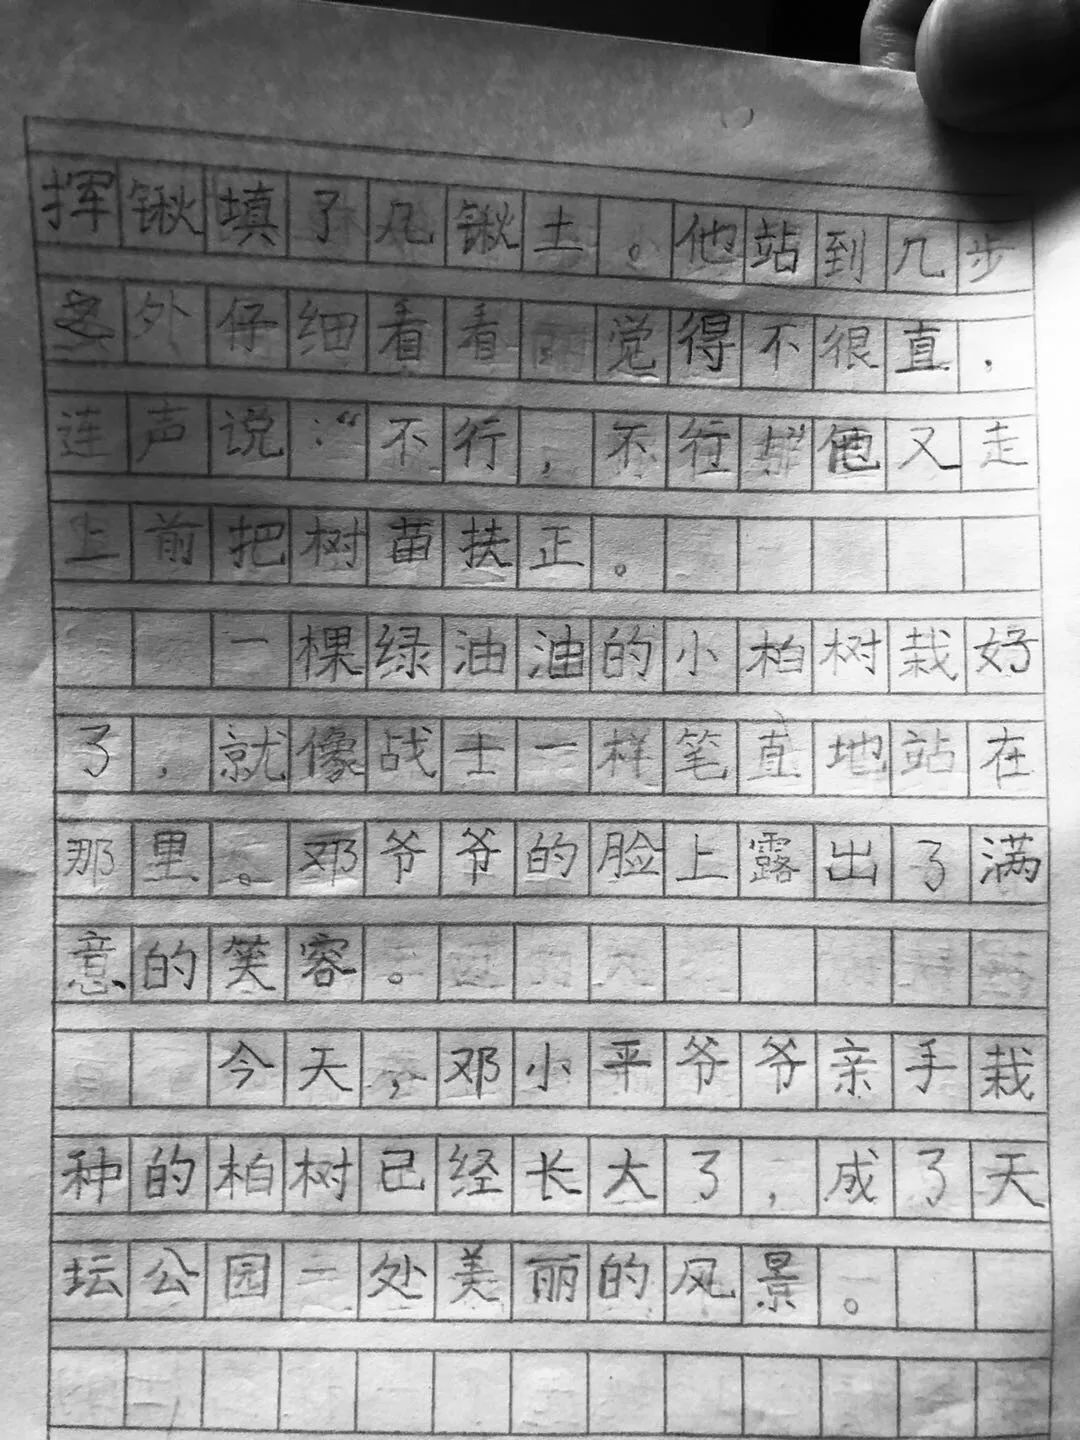 挥锹填了几锹土。他站到几步
之外仔细看看觉得不很直，
连声说：“不行，不行！”他又走
上前把树苗扶正。
一棵绿油油的小柏树栽好
了，就像战士一样笔直地站在
那里。邓爷爷的脸上露出了满
意的笑容。
今天，邓小平爷爷亲手栽
种的柏树已经长大了，成了天
坛公园一处美丽的风景。